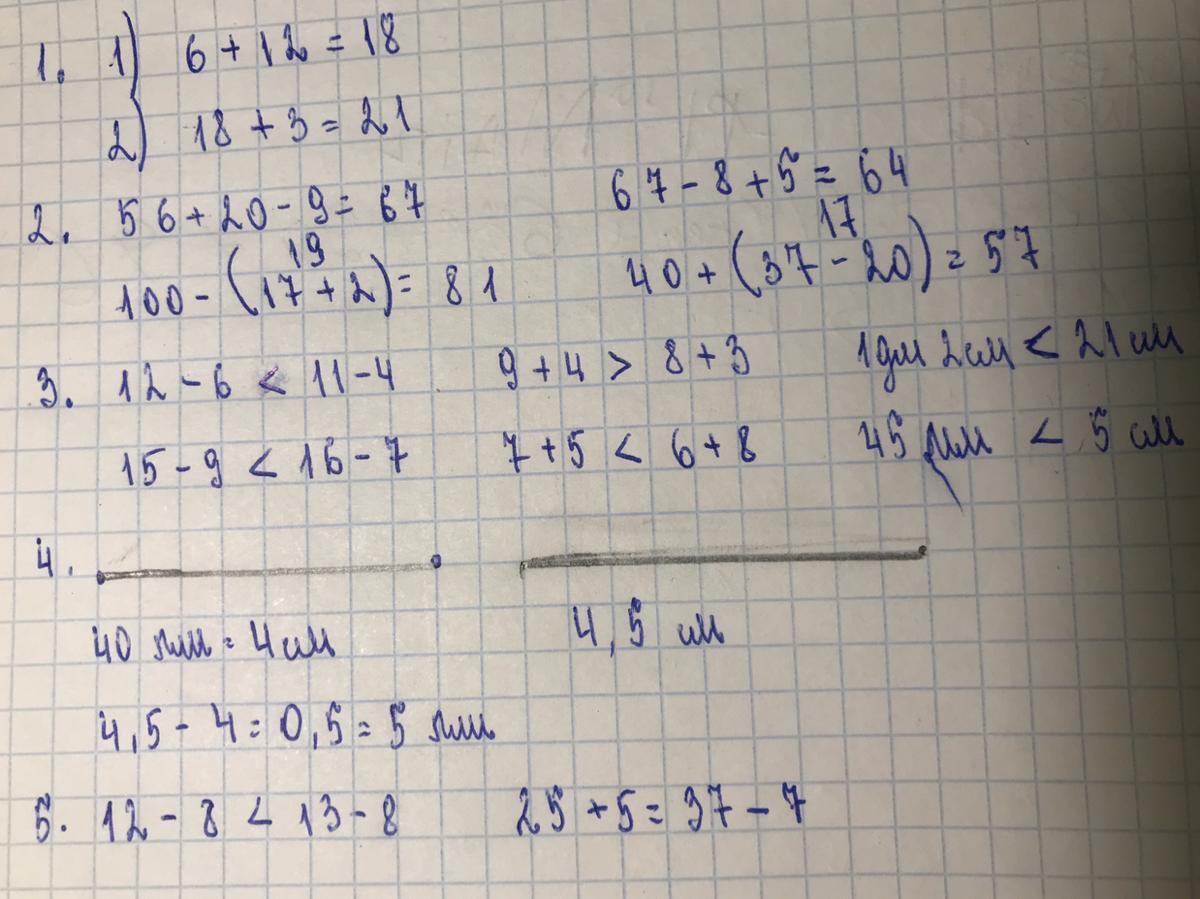 1. 1) 6 + 12 = 18
2) 18 + 3 = 21
2. 56 + 20 - 9 = 67 67 - 8 + 5 = 64
19 17
100 - (17 + 2) = 81 40 + (37 - 20) = 57
3. 12 - 6 < 11 - 4 9 + 4 > 8 + 3 1дм 2см < 21 см
15 - 9 < 16 - 7 7 + 5 < 6 + 8 45 мм < 5 см
4.
40 мм = 4 см 4,5 см
4,5 - 4 = 0,5 = 5 мм
5. 12 - 8 < 13 - 8 25 + 5 = 37 - 7